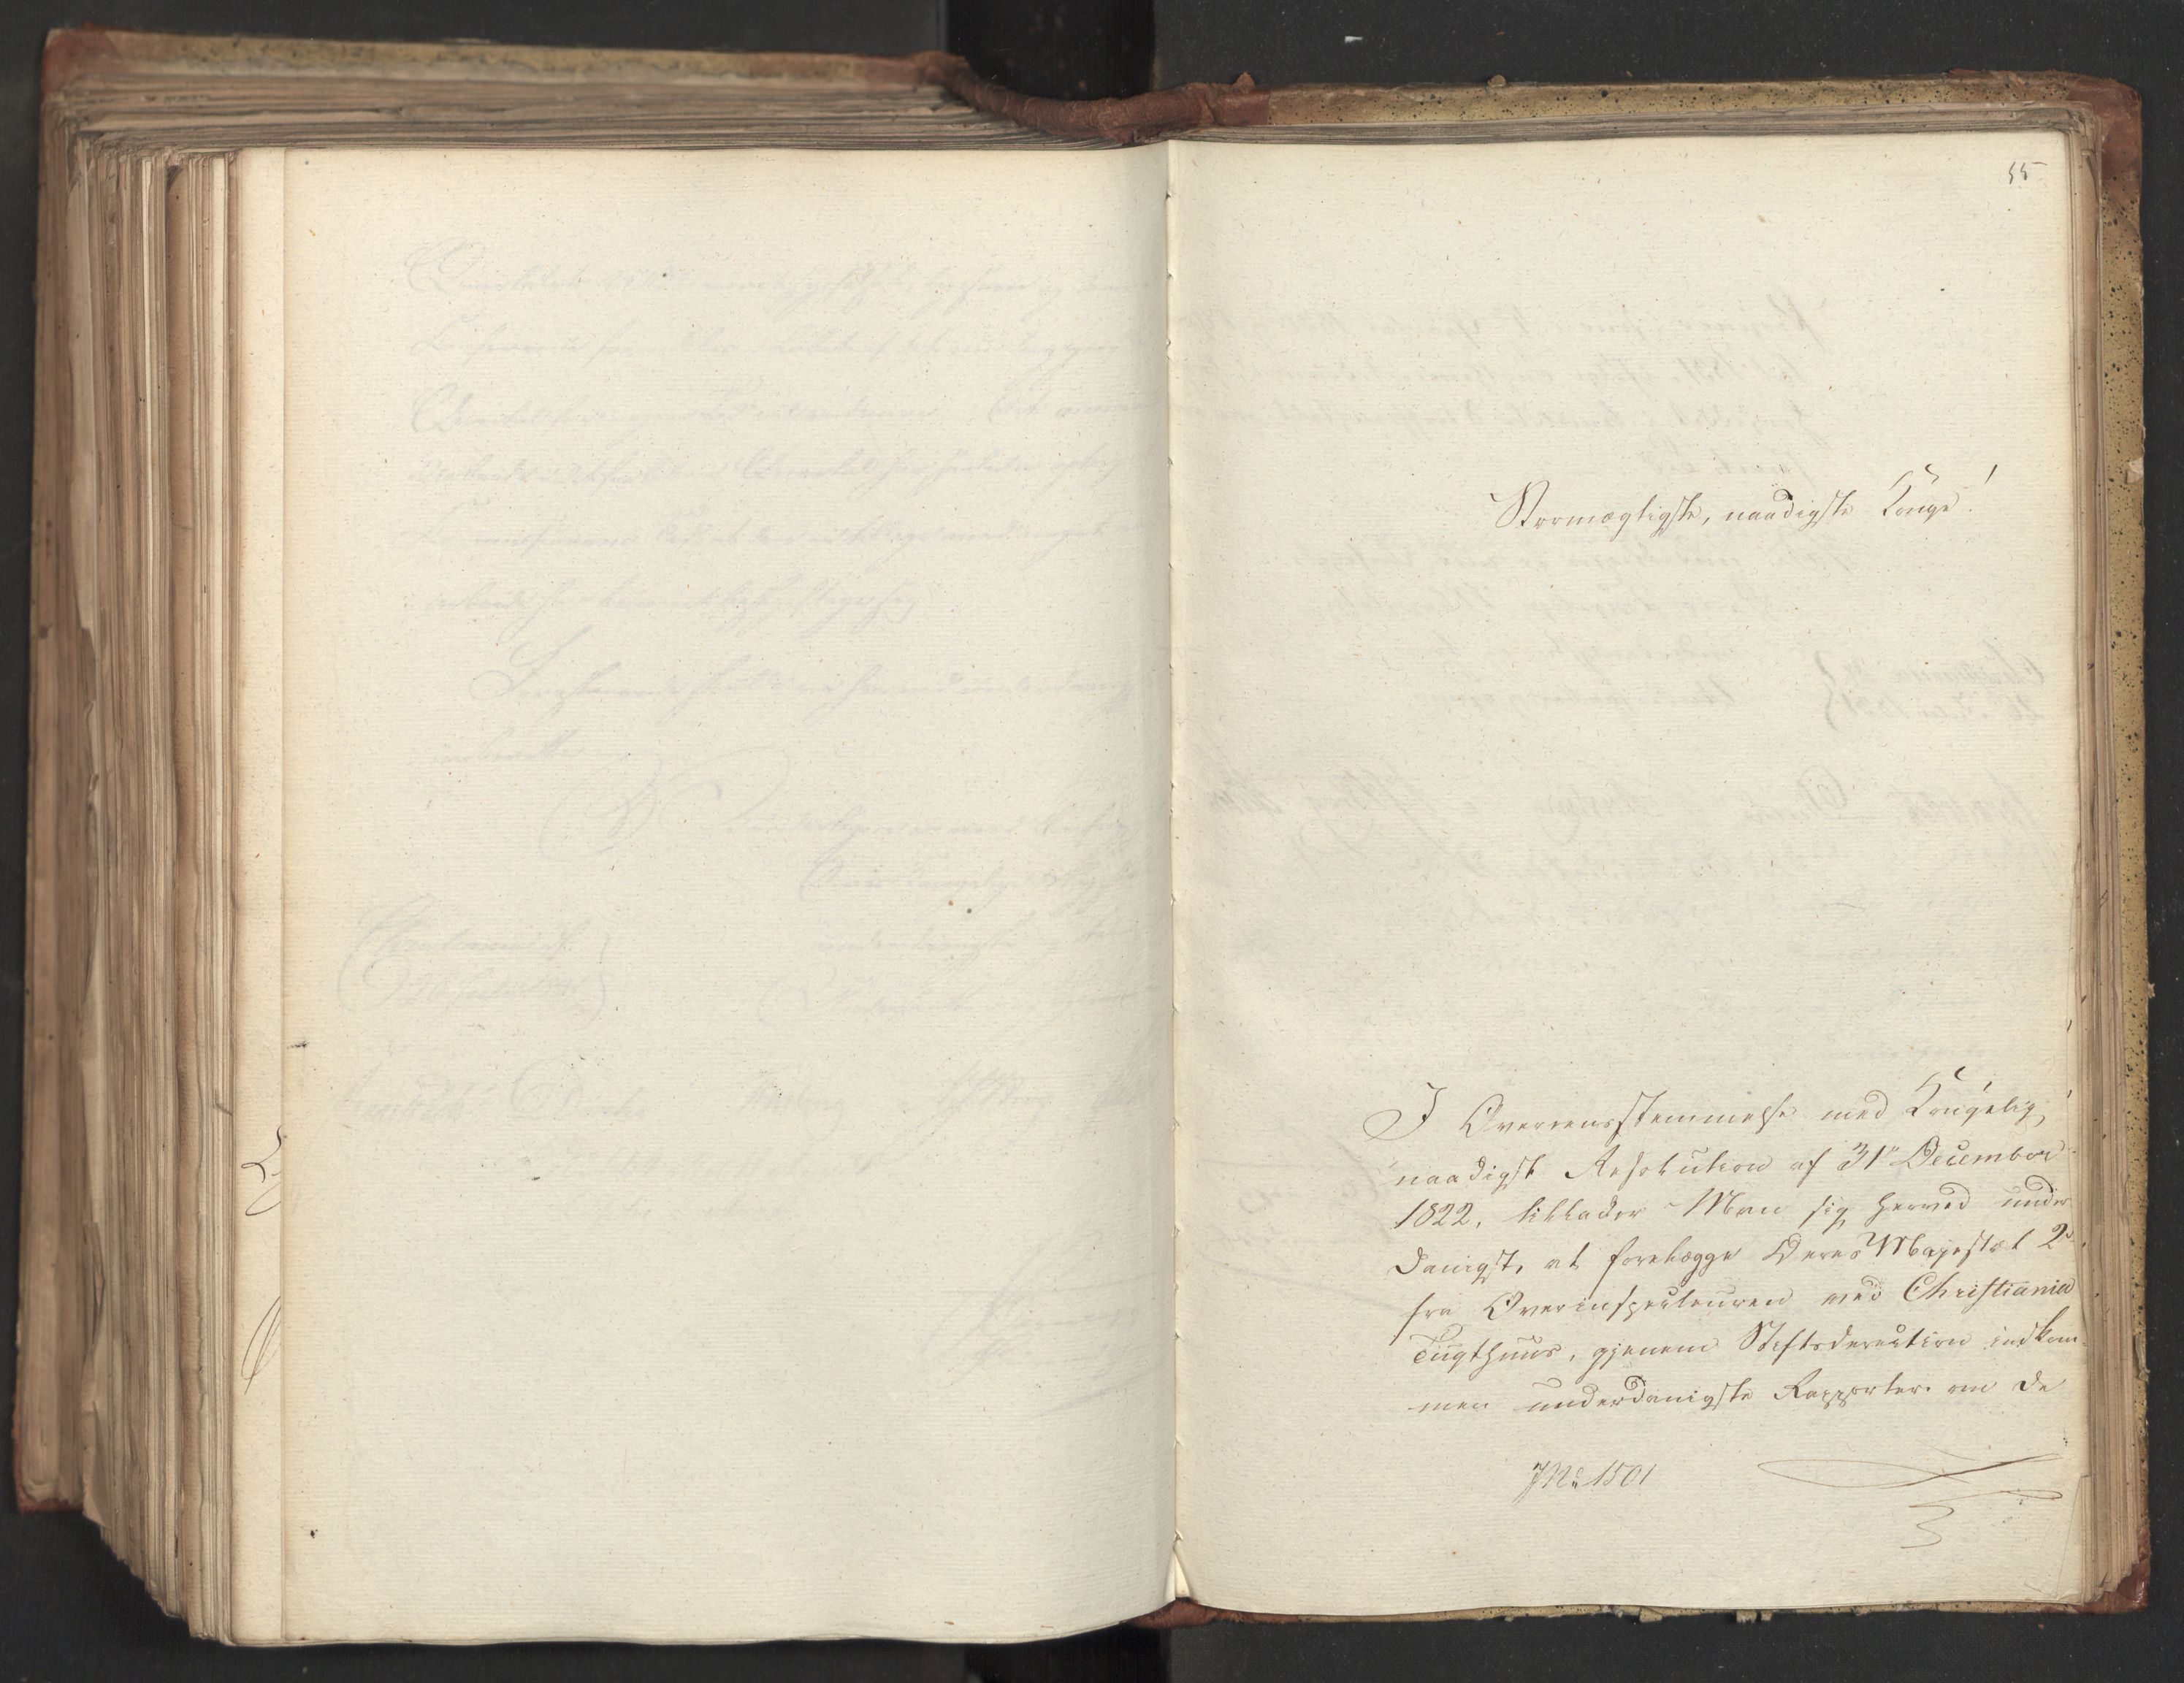 55
Stormægtigste, naadigste Konge!
I Overeensstemmelse med Kongelig,
naadigst Resolution af 31te December
1822, tillader Man sig herved under
danigst, at forelægge Deres Majestæt 2de
fra Overinspecteuren ved Christiania
Tugthuus, gjennem Stiftsdirection indkom
men underdanigste Rapporter om de
JNo 1501